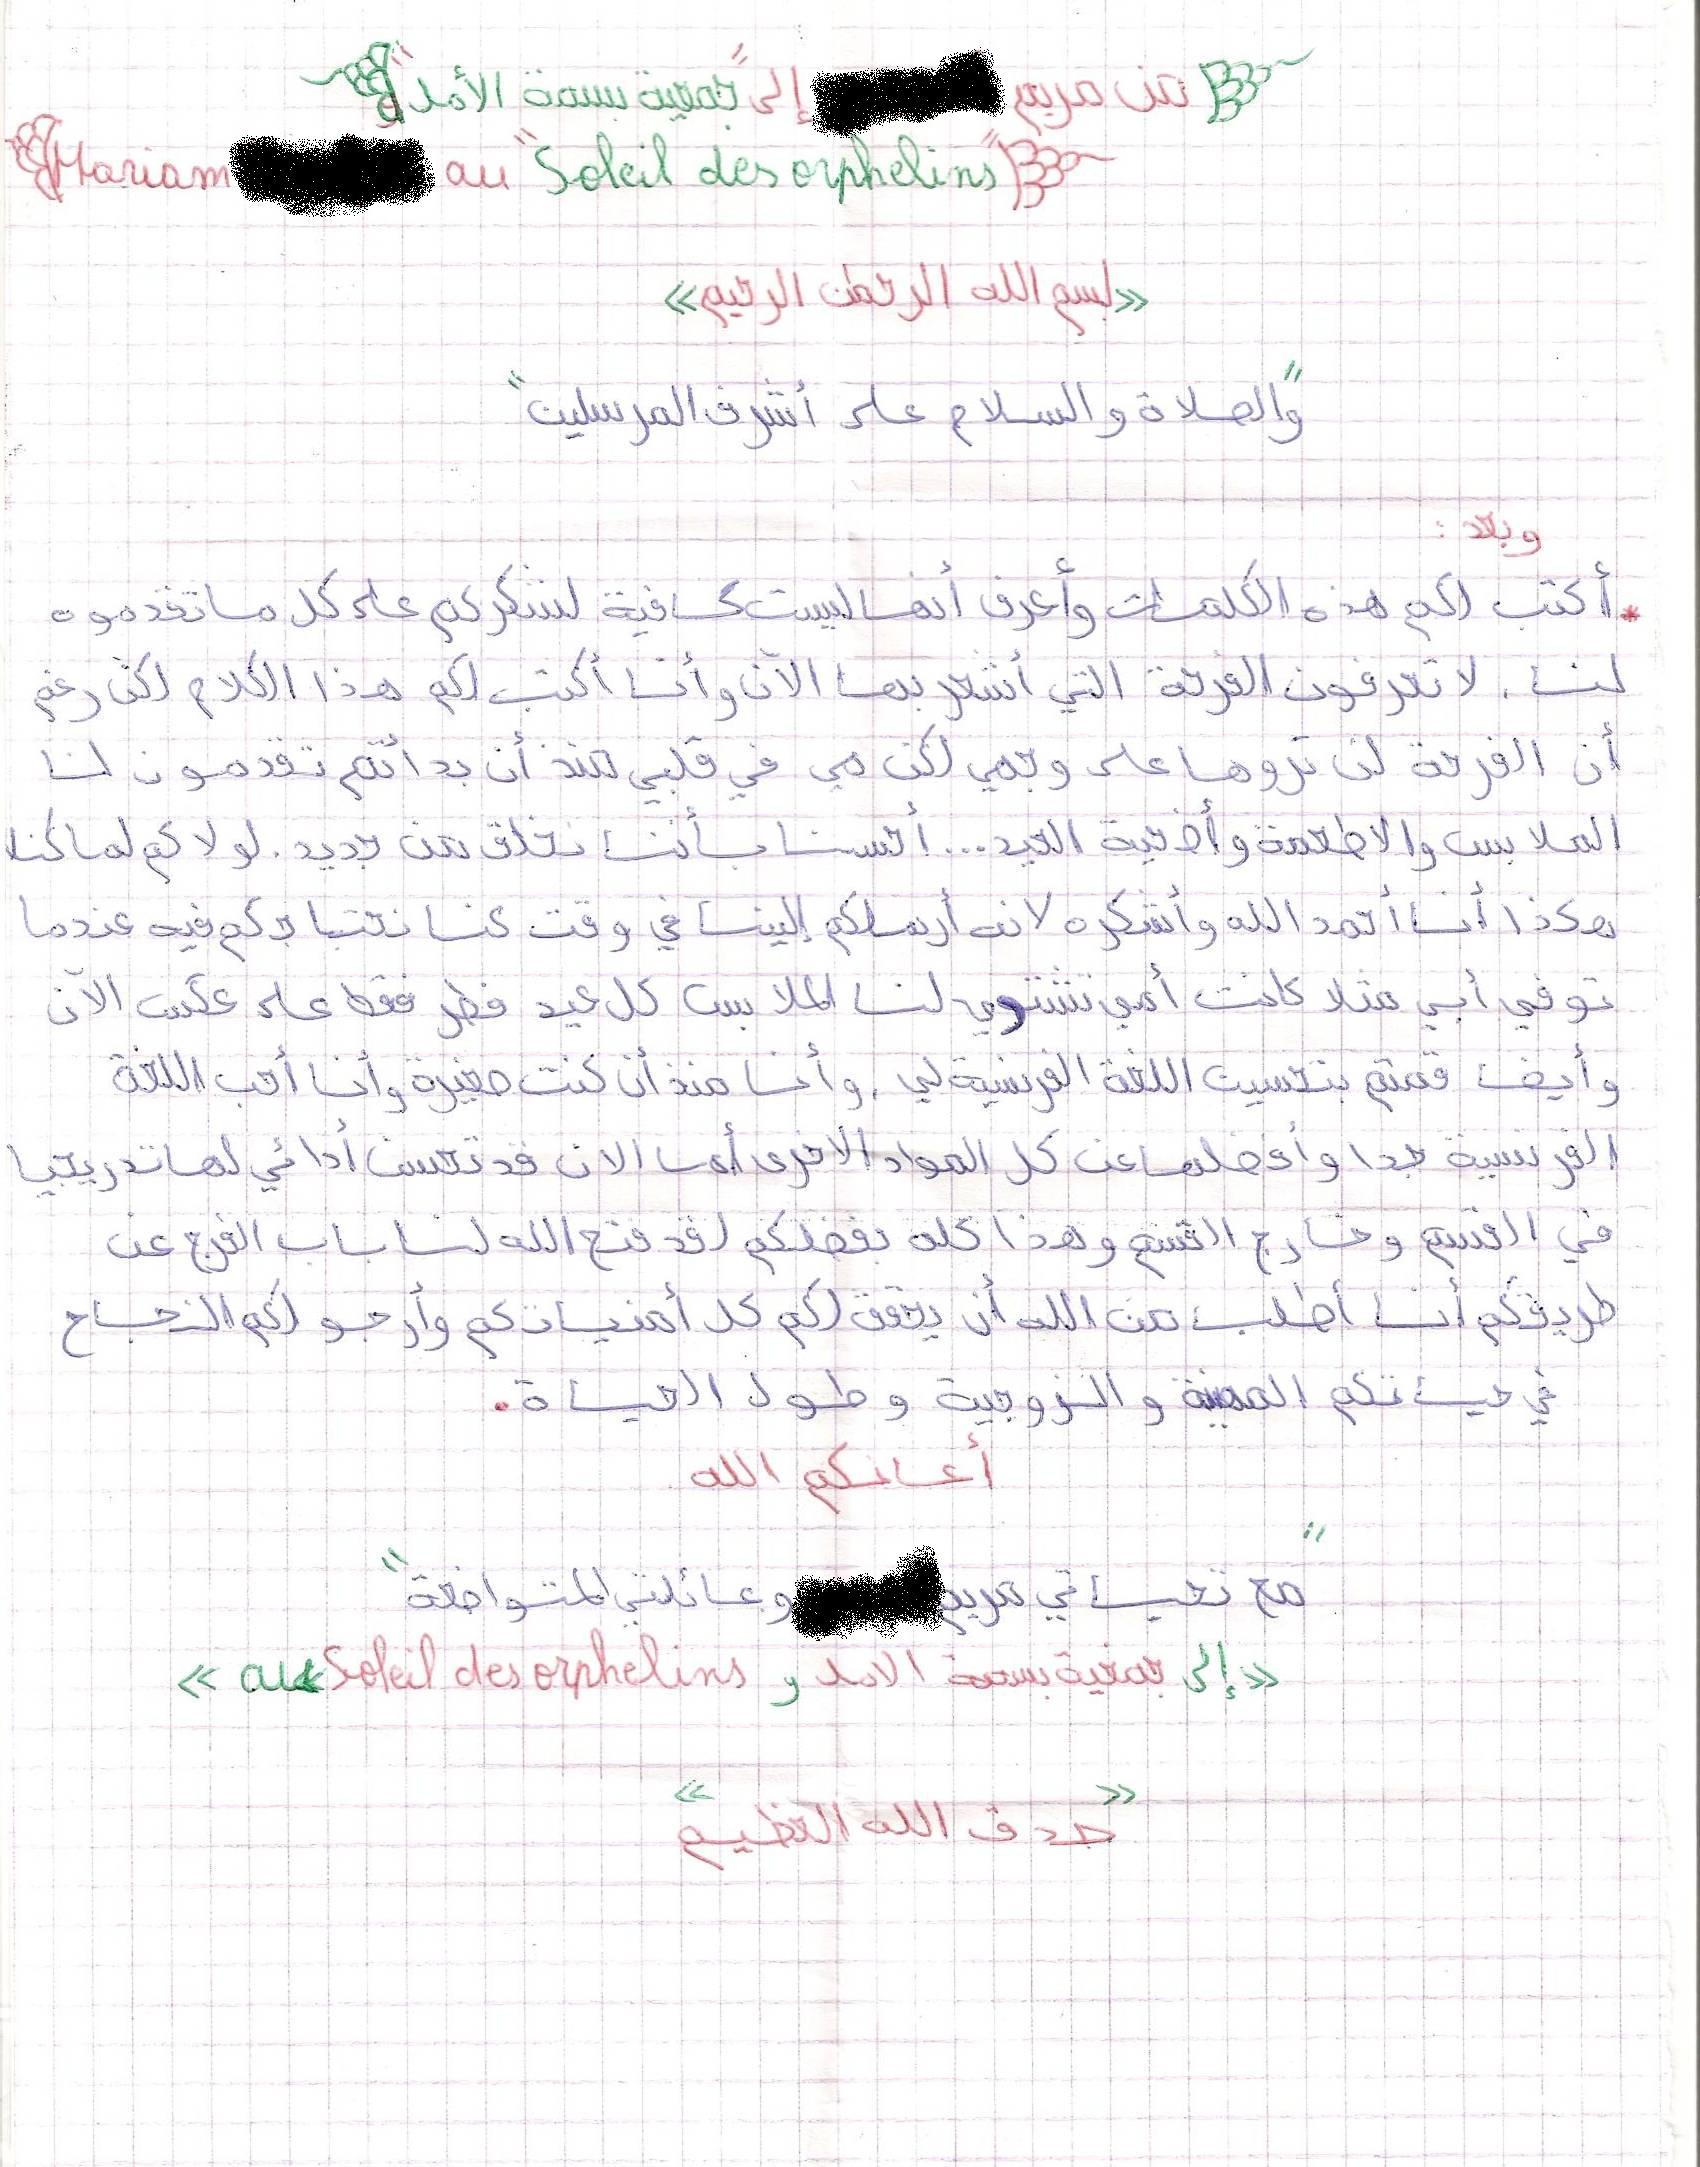 من مريم إلى "جمعية بسمة الأمل"
Mariam au "Soleil des orphelins"
«بسم الله الرحمن الرحيم»
"والصلاة والسلام على أشرف المرسلين"
وبعد :
أكتب لكم هذه الكلمات وأعرف أنها ليست كافية لنشكركم على كل ما تقدموه
لنا. لا تعرفون الفرحة التي أشعر بها الآن وأنا أكتب لكم هذا الكلام لكن رغم
أن الفرحة لن تروها على وجهي لكن هي في قلبي منذ أن بدأتم تقدمون لنا
الملابس والاطعمة وأضحية العيد... أحسسنا بأننا نخلق من جديد. لولاكم لما كنا
هكذا أنا أحمد الله وأشكره لانه أرسلكم إلينا في وقت كنا نحتاجكم فيه عندما
توفي أبي مثلا كانت أمي تشتري لنا الملابس كل عيد فطر فقط على عكس الآن
وأيضا قمتم بتحسين اللغة الفرنسية لي. وأنا منذ أن كنت صغيرة وأنا أحب اللغة
الفرنسية جدا وأفضلها عن كل المواد الاخرى أما الان قد تحسن أدائي لها تدريجيا
في القسم وخارج القسم وهذا كله بفضلكم لقد فتح الله لنا باب الفرج عن
طريقكم أنا أطلب من الله أن يحقق لكم كل أمنياتكم وأرجو لكم النجاح
في حياتكم المهنية والزوجية وطول الحياة.
أعانكم الله
"مع تحياتي مريم وعائلتي المتواضعة"
«إلى جمعية بسمة الامل و au Soleil des orphelins»
«صدق الله العظيم»